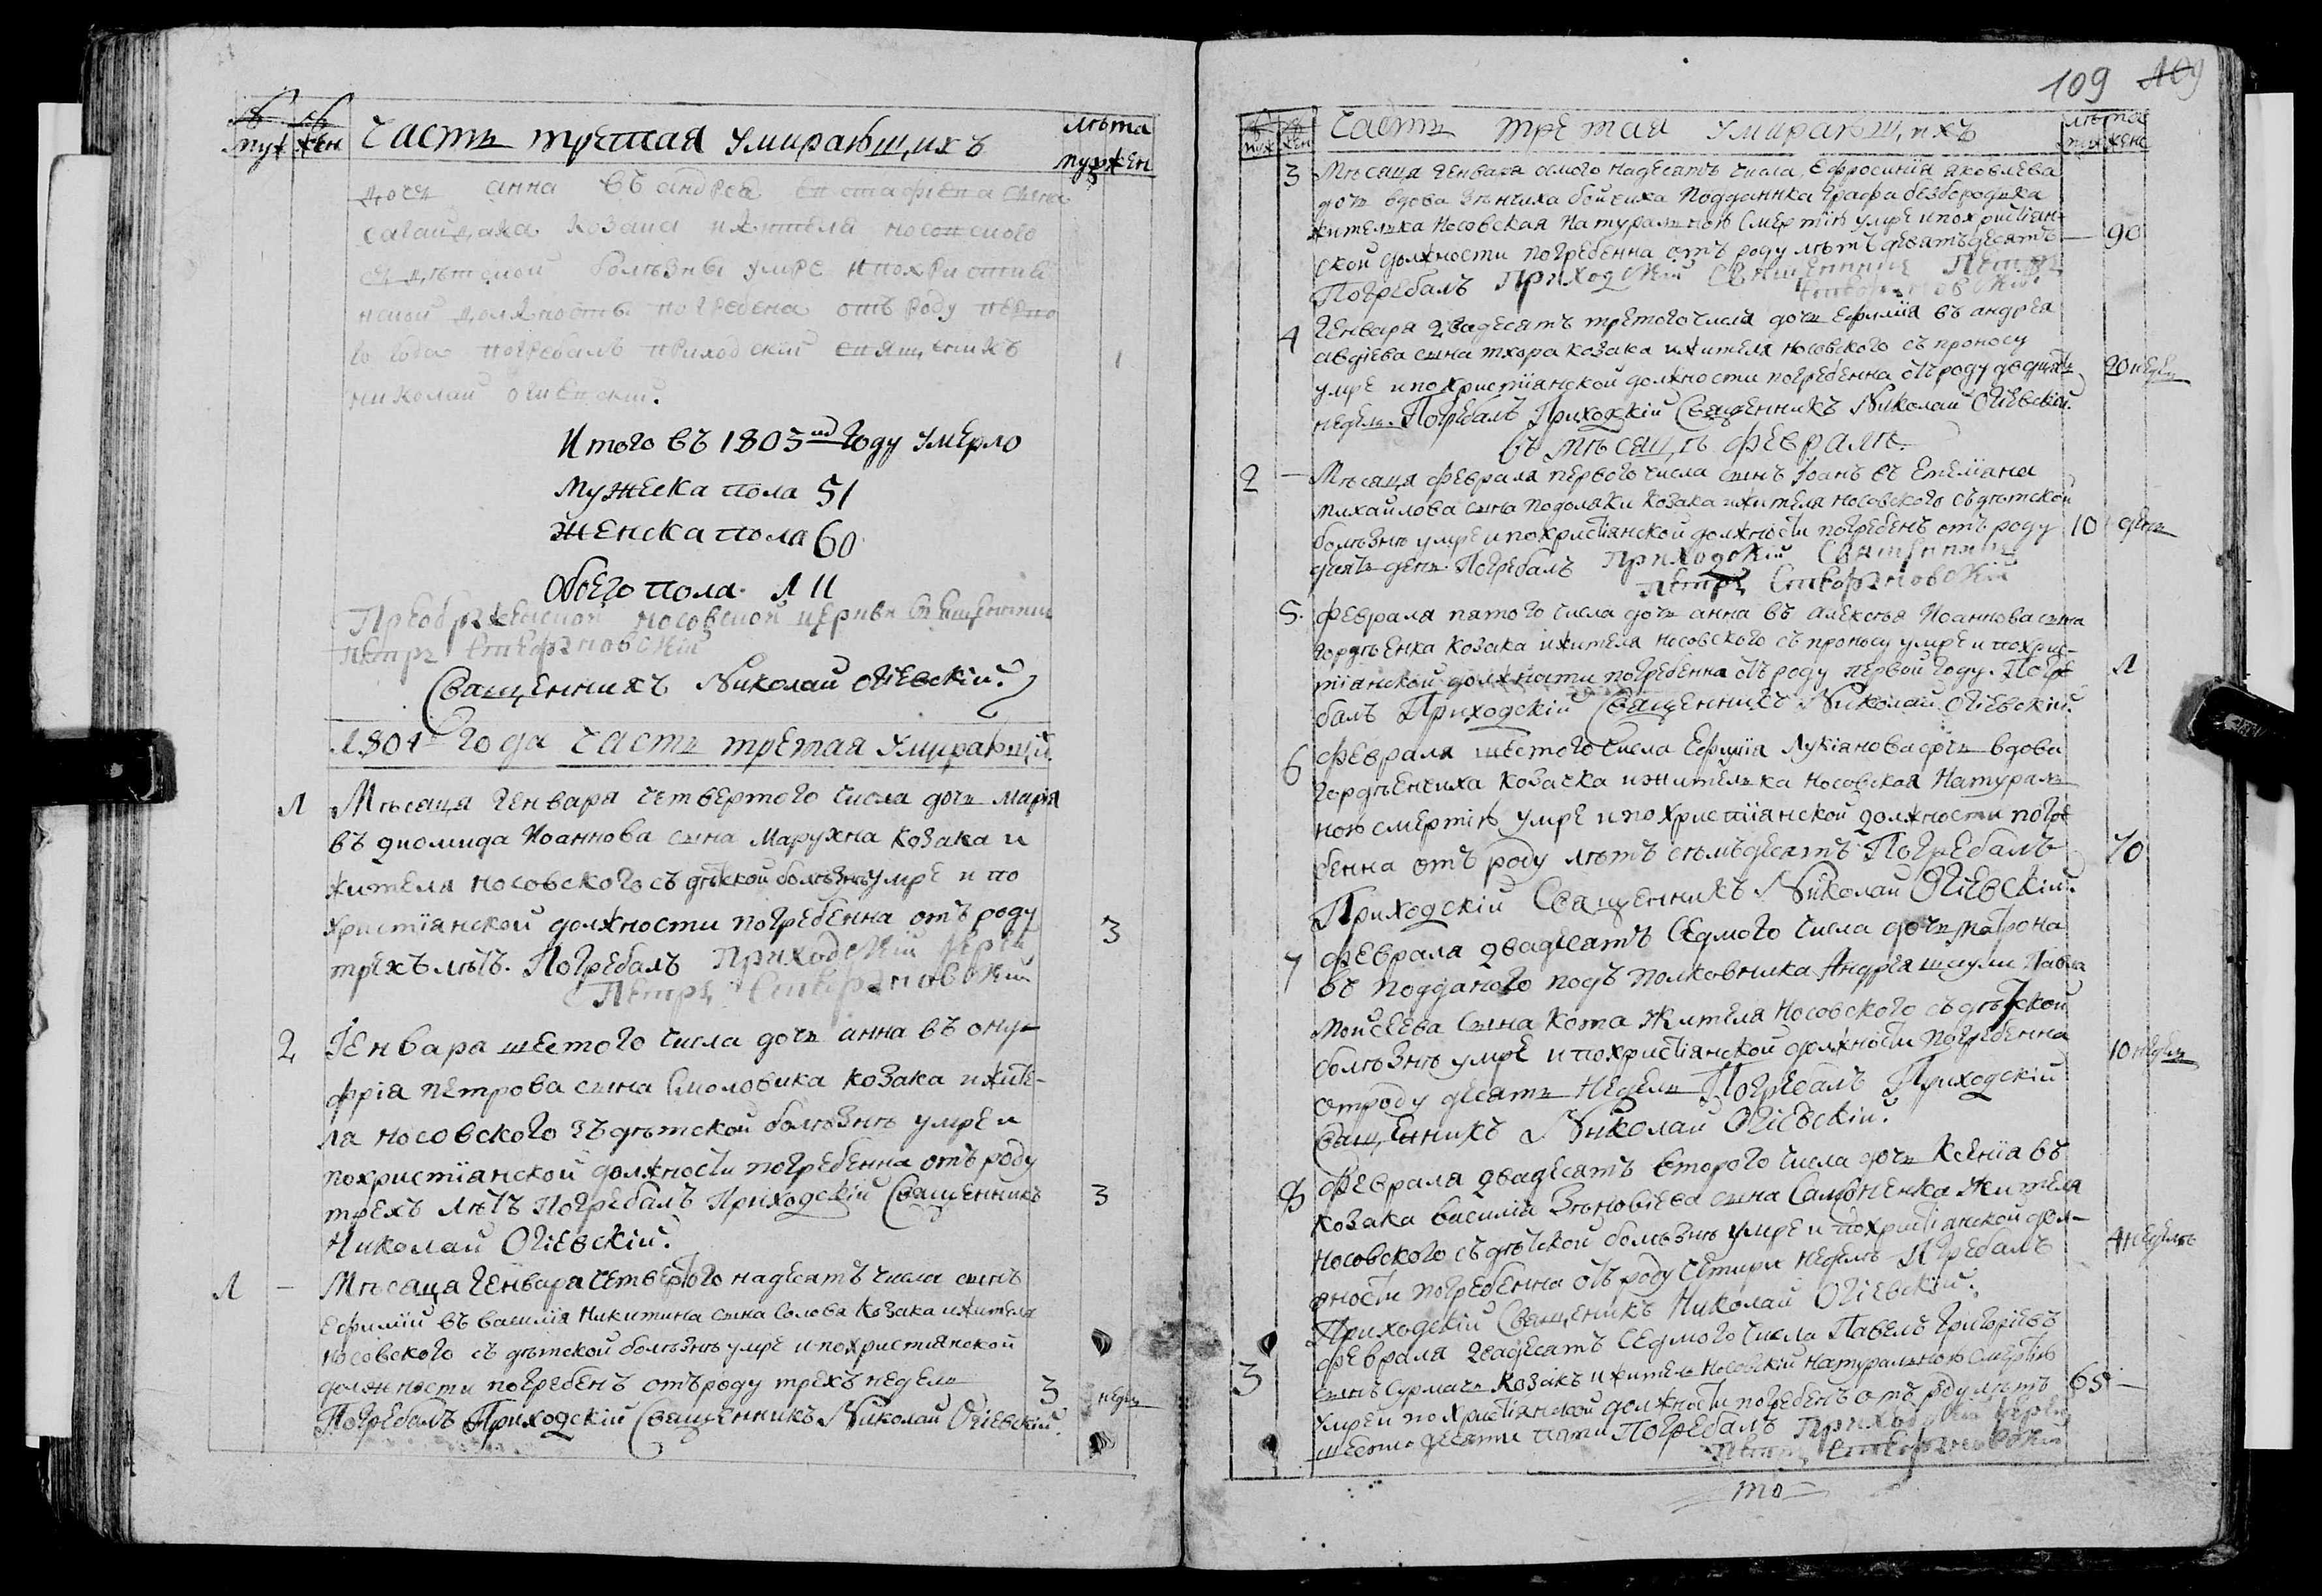 № № Часть третая умираюш,ихъ лѣта
муж жен муж жен
дочь анна въ андрея сына
сагайдака козака и жителя носовского
съ дѣтской болѣзны умре и похристия
нской должносты погребена отъ роду перво
го года погребалъ приходский священникъ 1
николай огиевский.
Итого въ 1803мъ году умерло
Мужеска пола 51
Женска пола 60
Обоего пола. 111
Преображенской носовской церкви священникъ
петръ стефановский
Священникъ Николай Огіевскій.
1804го года часть третая умирающи.
1 Мѣсаца генваря четвертого числа дочь Марія
въ диомида Иоаннова сына Марухна козака и
жителя носовского съ дѣтской болѣзнѣ умре и по
христіянской должности погребенна отъ роду 3
трехъ лѣтъ. Погребалъ Приходский Іерей
Петръ Стефановский
2 Генвара шестого числа дочь анна въ ону-
фрія петрова сына Смоловика козака и жите-
ля носовского зъ дѣтской болѣзнѣ умре и
похристіянской должности погребенна отъ роду
трехъ лѣтъ Погребалъ Приходскій Священникъ 3
Николай Огіевскій.
1 — Мѣсаца Генвара четвертого надесять числа сынъ
Ефимій въ василія Никитина сына Солова козака и жителя
носовского съ дѣтской болѣзнѣ умре и похристіянской
должности погребенъ отъ роду трехъ недель 3 недель
Погребалъ Приходскій Священникъ Николай Огіевскій.
109 109
№ № Часть третая умираюш,ихъ лѣта
муж жен муж жене
3 Мѣсаца генвара осмого надесять числа Ефросинія яковлева
дочь вдова бойчиха Подданика Графа безбородька
жителька Носовская Натуральною Смертію умре и похристіян-
ской должности погребенна отъ роду лѣтъ девятьдесятъ — 90
Погребалъ Приходский Священникъ Петръ
Стефановский
4 Генваря двадесятъ третого числа дочь Ефимія въ андрея
авдіева сына тхора козака и жителя носовского съ проносу
умре и похристіянской должности погребенна отъ роду двадцять 20 недель
недель. Погребалъ Приходскій Священникъ Николай Огіевскій.
въ мѣсацѣ февралѣ.
2 — Мѣсаца февраля первого числа сынъ Іоанъ въ Емеліана
михайлова сына подоляки козака и жителя носовского съ дѣтской
болѣзнѣ умре и похристіянской должности погребенъ отъ роду 10 день
день. Погребалъ Приходский Священникъ
Петръ Стефановский
5. февраля пятого числа дочь анна въ алексѣя Иоаннова сына
гордѣенка козака и жителя носовского съ проносу умре и похрис-
тіанской должности погребенна отъ роду первой году. Погре 1
балъ Приходскій Священникъ Николай Огіевскій.
6 февраля шестого числа Ефимія Лукіянова дочь вдова
гордѣенчиха козачка и жителька носовская Натураль
ною смертію умре и похристіянской должности погре
бенна отъ роду лѣтъ сѣмьдесятъ Погребалъ 70
Приходскій Священникъ Николай Огіевскій.
7 февраля двадесятъ Седмого числа дочь матрона
въ подданого подъ полковника Андрія Павла
Мойсеева сына кота Жителя Носовского съ дѣтской
болѣзнѣ умре и похристіянской должности погребенна 10 недель
отроду десять недель Погребалъ Приходскій
Священникъ Николай Огіевскій.
8 Февраля двадесятъ второго числа дочь Ксенія въ
козака василія Зѣновіева сына Самоненка жителя
носовского съ дѣтской болѣзнѣ умре и похристіянской дол-
жности погребенна отъ роду четири неделѣ Погребалъ 4 неделѣ
Приходскій Священикъ Николай Огіевскій.
3 февраля двадесятъ Седмого числа Павелъ Григоріевъ
сынъ Сурмачь Козакъ и житель Носовскій натуральною смертію 65 —
умре и похристіянской должности погребенъ отъ роду лѣтъ
шестьдесяти пяти Погребалъ Приходский Іерей
Петръ Стефановский
то